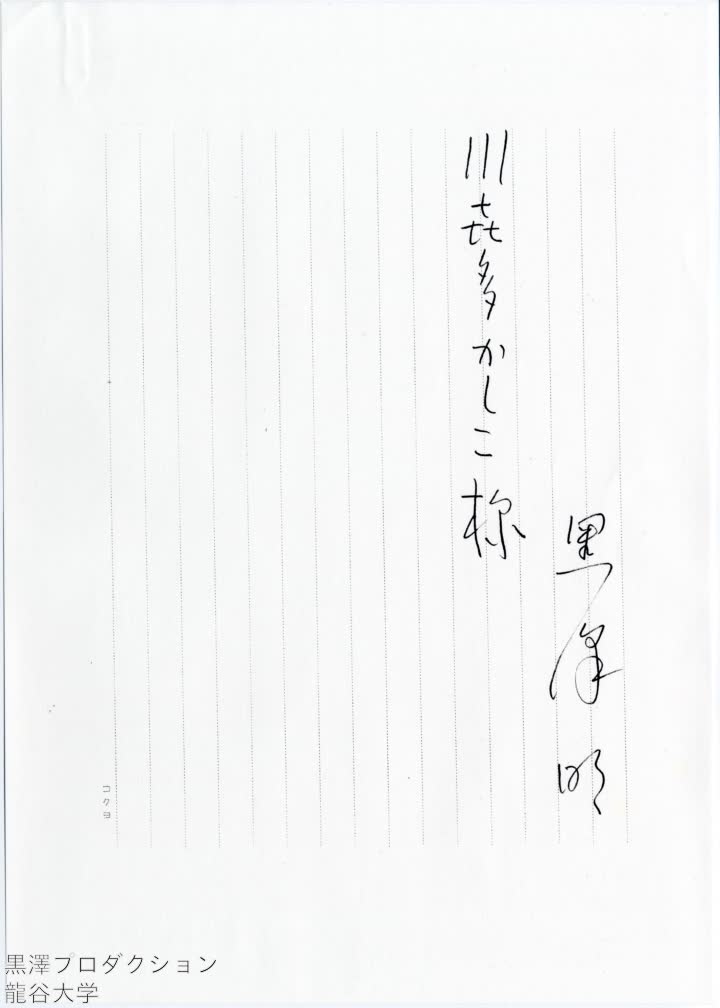 黒澤明
川喜多かしこ様
コクヨ
黒澤プロダクション
龍谷大学